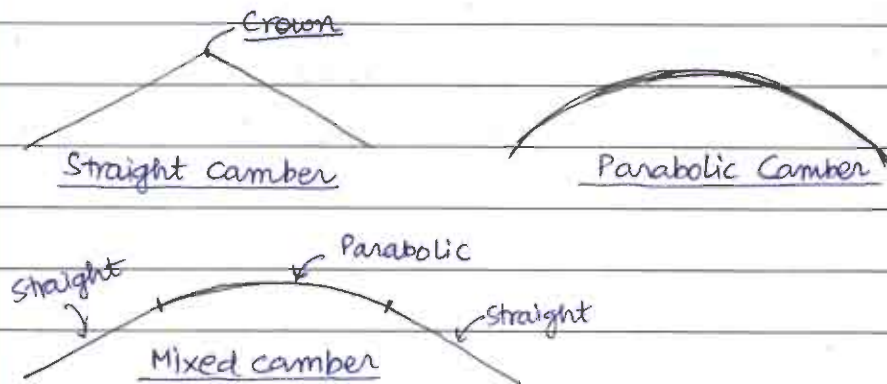 Crown
Straight camber
Parabolic Camber
Parabolic
Straight
Straight
Mixed camber